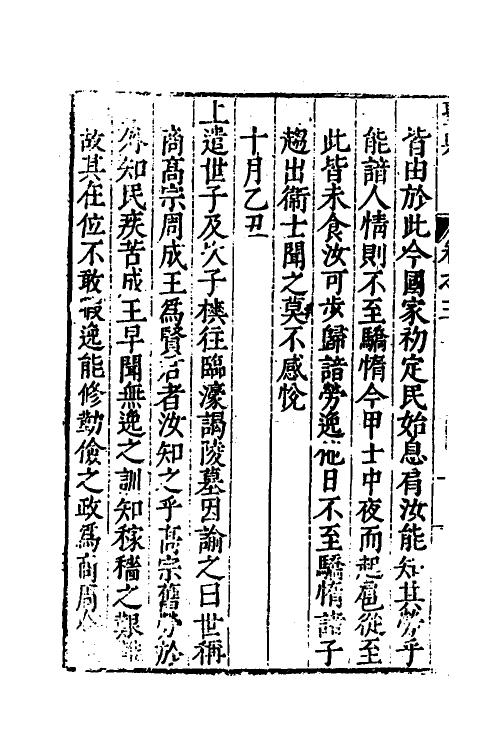 皆由於此今國家初定民始息肩汝能知其勞乎
能諳人情則不至驕惰今甲士中夜而起扈從至
此皆未食汝可步歸諳勞逸他日不至驕惰諸子
趨出衛士聞之莫不感悅
十月乙丑
上遣世子及次子樉往臨濠謁陵墓因諭之曰世稱
商高宗周成王爲賢君者汝知之乎高宗舊勞於
外知民疾苦成王早聞無逸之訓知稼穡之艱難
故其在位不敢暇逸能修勤儉之政爲商周令